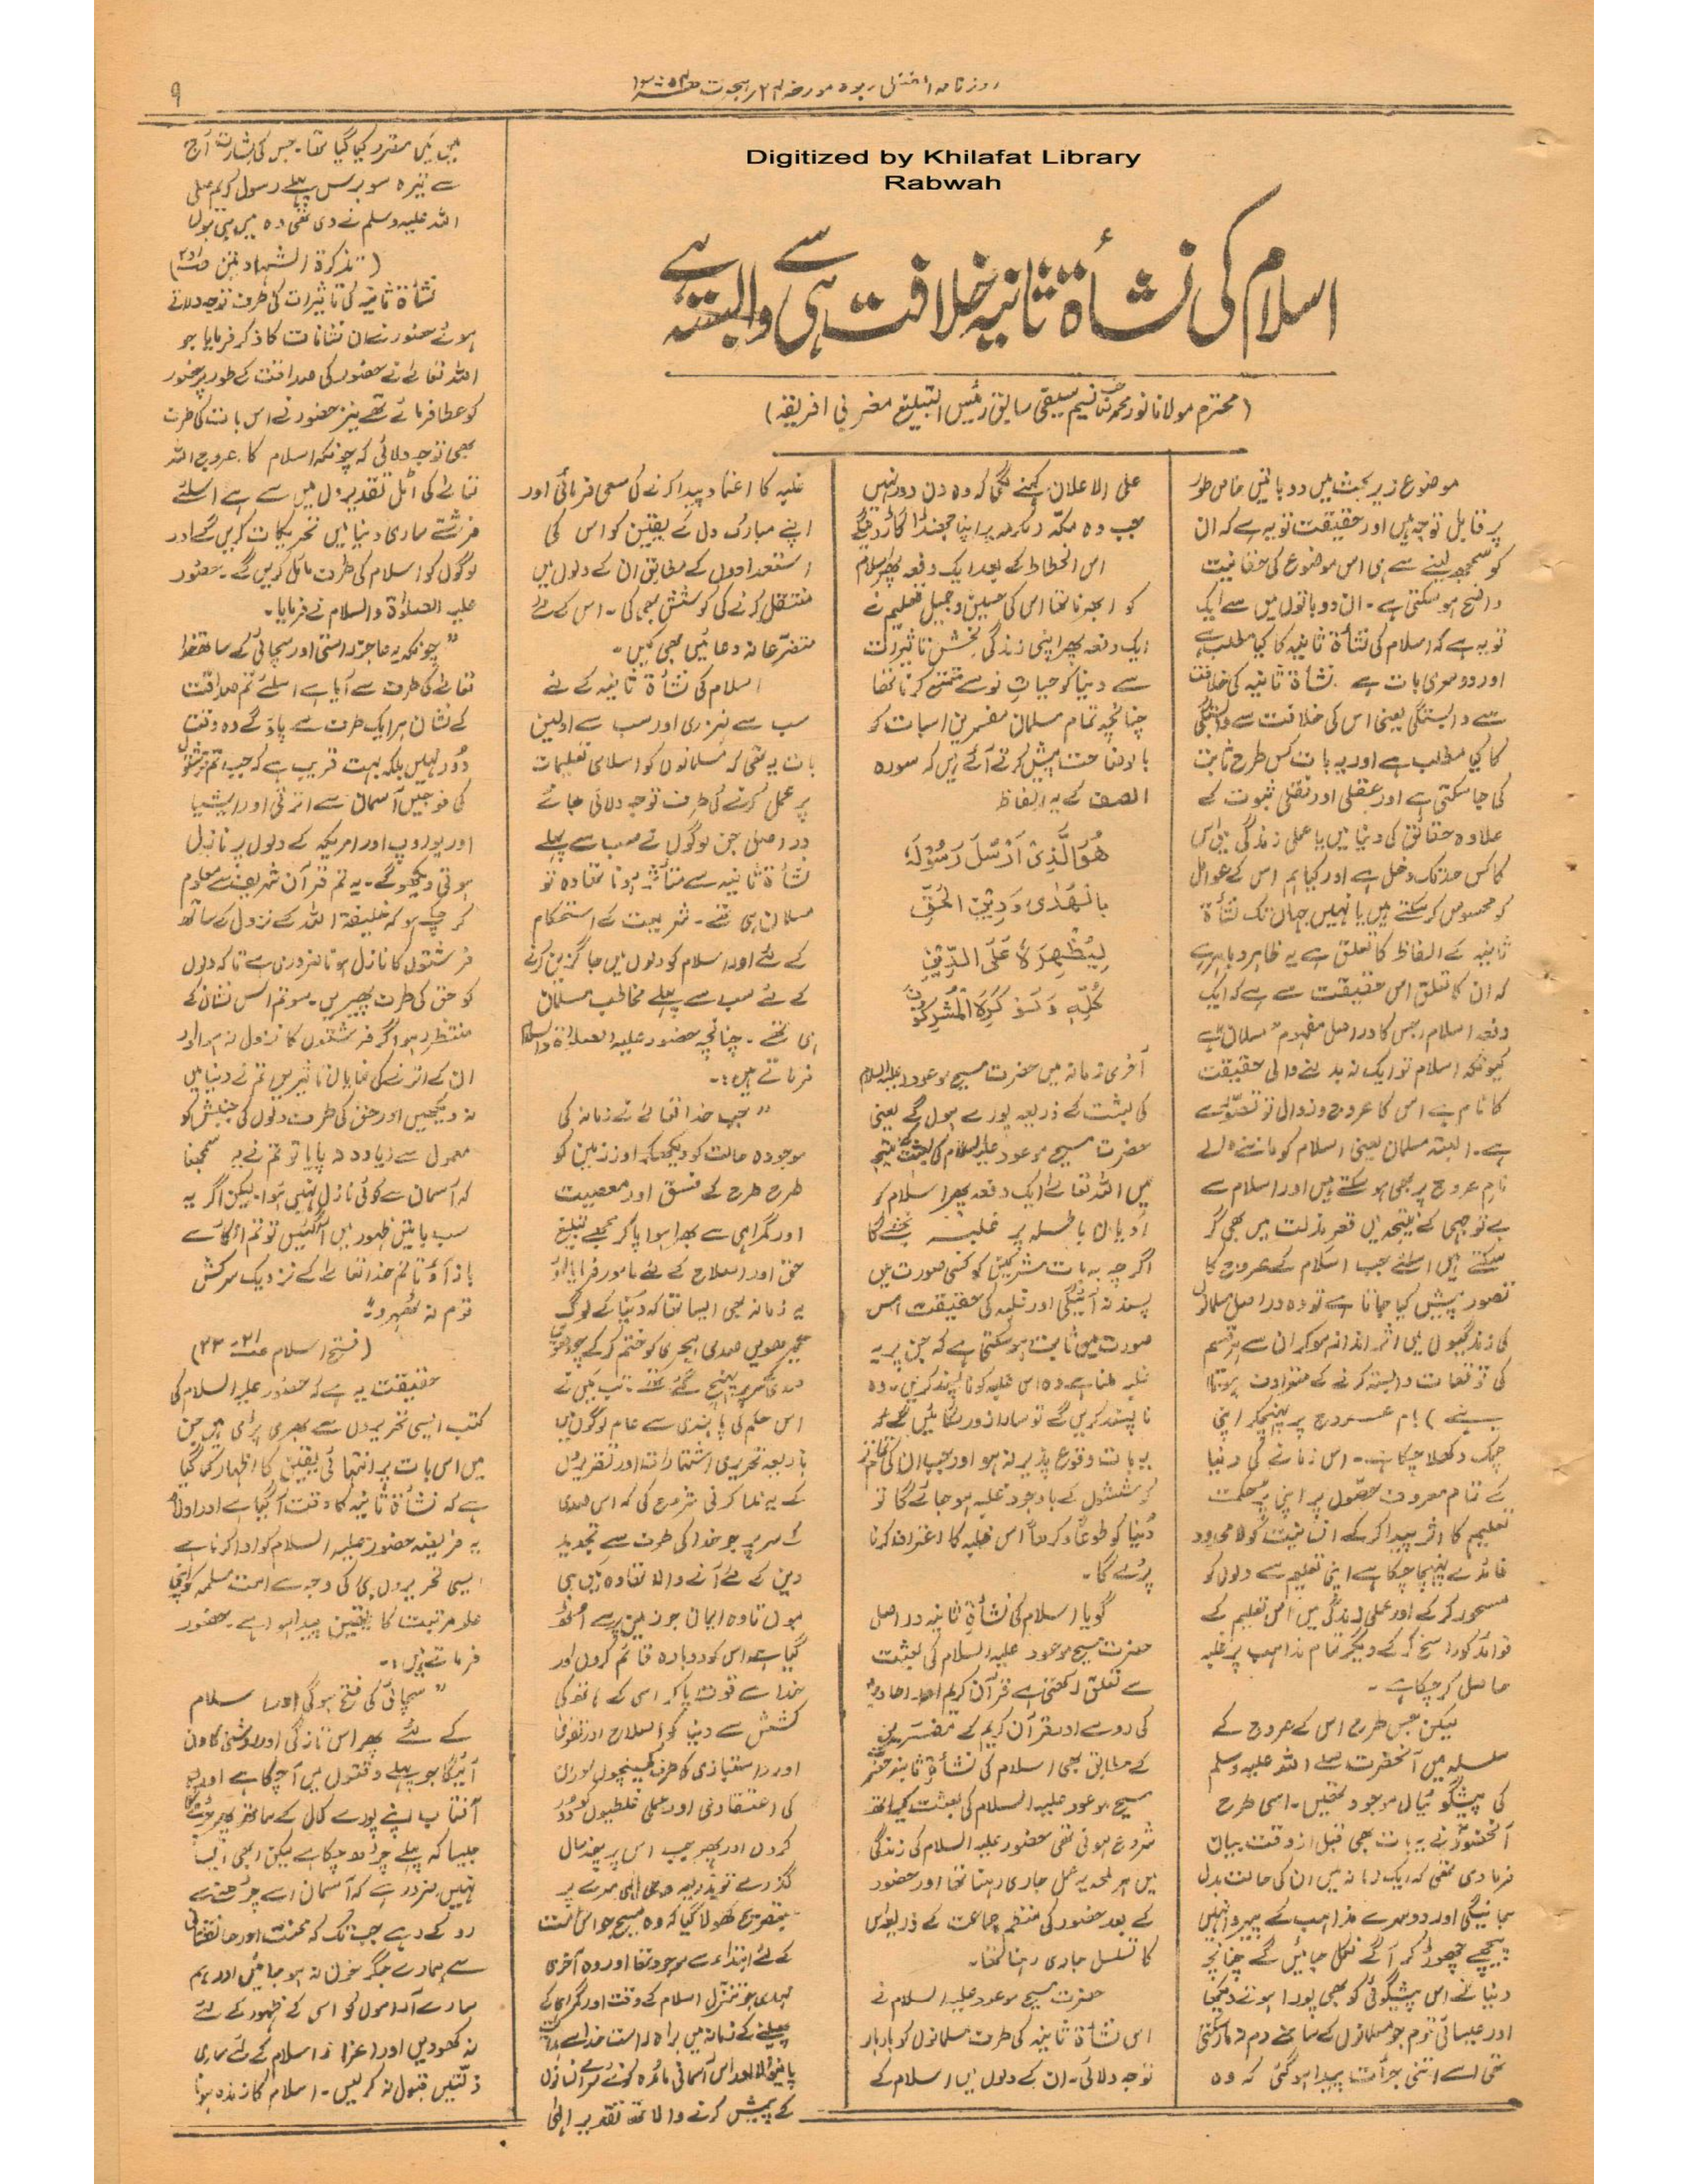 روزنامہ الفضل ربوہ مورخہ ۲۴ ہجرت
۹
Digitized by Khilafat Library
Rabwah
اسلام کی نشأۃ ثانیہ خلافت سے ہی وابستہ ہے
(محترم مولانا نور محمد صاحب نسیم سیفی سابق رئیس التبلیغ مغربی افریقہ)
موضوع زیر بحث میں دو باتیں خاص طور
پر قابل توجہ ہیں اور حقیقت تو یہ ہے کہ ان
کو سمجھ لینے سے ہی اس موضوع کی حقانیت
واضح ہو سکتی ہے۔ ان دو باتوں میں سے ایک
تو یہ ہے کہ اسلام کی نشأۃ ثانیہ کا کیا مطلب ہے
اور دوسری بات ہے نشأۃ ثانیہ کی خلافت
سے وابستگی یعنی اس کی خلافت سے وابستگی
کا کیا مطلب ہے اور یہ بات کس طرح ثابت
کی جا سکتی ہے اور عقلی اور نقلی ثبوت کے
علاوہ حقائق کی دنیا میں یا عملی زندگی میں اس
کا کس حد تک دخل ہے اور کیا ہم اس کے عوامل
کو محسوس کر سکتے ہیں یا نہیں جہاں تک نشأۃ
ثانیہ کے الفاظ کا تعلق ہے یہ ظاہر و باہر ہے
کہ ان کا تعلق اس حقیقت سے ہے کہ ایک
دفعہ اسلام جس کا دراصل مفہوم مسلمان ہے
کیونکہ اسلام تو ایک نہ بدلنے والی حقیقت
کا نام ہے اس کا عروج و زوال تو تصوّر سے
ہے۔ البتہ مسلمان یعنی اسلام کو ماننے والے
بام عروج پر بھی ہو سکتے ہیں اور اسلام سے
بے توجہی کے نتیجہ میں قعر مذلت میں بھی گر
سکتے ہیں اسلئے جب اسلام کے عروج کا
تصور پیش کیا جاتا ہے تو وہ دراصل مسلمانوں
کی زندگیوں میں اثر انداز ہو کر ان سے ہر قسم
کی توقعات وابستہ کرنے کے مترادف ہوتا
ہے) بام عروج پر پہنچ کر اپنی
چمک دکھلا چکا ہے۔ اس زمانے کی دنیا
کے تمام معروف حصّوں پر اپنی پُر حکمت
تعلیم کا اثر پیدا کر کے انسانیت کو لا محدود
فائدے پہنچا چکا ہے اپنی تعلیم سے دلوں کو
مسحور کر کے اور عملی زندگی میں اس تعلیم کے
فوائد کو راسخ کر کے دیگر تمام مذاہب پر غلبہ
حاصل کر چکا ہے۔
لیکن جس طرح اس کے عروج کے
سلسلہ میں آنحضرت صلے اللہ علیہ وسلم
کی پیشگوئیاں موجود تھیں۔ اسی طرح
آنحضورؐ نے یہ بات بھی قبل از وقت بیان
فرما دی تھی کہ ایک زمانہ میں ان کی حالت بدل
جائیگی اور دوسرے مذاہب کے پیرو انہیں
پیچھے چھوڑ کر آگے نکل جائیں گے چنانچہ
دنیا نے اس پیشگوئی کو بھی پورا ہوتے دیکھا
اور عیسائی قوم جو مسلمانوں کے سامنے دم نہ مار سکتی
تھی اسے اتنی جرأت پیدا ہو گئی کہ وہ
علی الاعلان کہنے لگی کہ وہ دن دور نہیں
جب وہ مکّہ مکرمہ پر اپنا جھنڈا گاڑ دینگے
اس انحطاط کے بعد ایک دفعہ پھر اسلام
کو ابھرنا تھا اس کی حسین و جمیل تعلیم نے
ایک دفعہ پھر اپنی زندگی بخش تاثیرات
سے دنیا کو حیاتِ نو سے متمتع کرنا تھا
چنانچہ تمام مسلمان مفسرین اس بات کو
با وضاحت پیش کرتے آئے ہیں کہ سورہ
الصف کے یہ الفاظ
هُوَ الَّذِيْ اَرْسَلَ رَسُوْلَهٗ
بِالْهُدٰى وَدِيْنِ الْحَقِّ
لِيُظْهِرَهٗ عَلَى الدِّيْنِ
كُلِّهٖ وَلَوْ كَرِهَ الْمُشْرِكُوْنَ
آخری زمانہ میں حضرت مسیح موعود علیہ السلام
کی بعثت کے ذریعہ پورے ہوں گے یعنی
حضرت مسیح موعود علیہ السلام کی بعثت کے نتیجہ
میں اللہ تعالے ایک دفعہ پھر اسلام کو
ادیان باطلہ پر غلبہ بخشے گا
اگرچہ یہ بات مشرکین کو کسی صورت میں
پسند نہ آئیگی اور غلبہ کی حقیقت اس
صورت میں ثابت ہو سکتی ہے کہ جن پر یہ
غلبہ ملنا ہے وہ اس غلبہ کو ناپسند کریں۔ وہ
نا پسند کریں گے تو سارا زور لگائیں گے کہ
یہ بات وقوع پذیر نہ ہو اور جب ان کی تمام تر
کوششوں کے باوجود غلبہ ہو جائے گا تو
دُنیا کو طوعاً و کرھاً اس غلبہ کا اعتراف کرنا
پڑے گا۔
گویا اسلام کی نشأۃ ثانیہ دراصل
حضرت مسیح موعود علیہ السلام کی بعثت
سے تعلق رکھتی ہے قرآن کریم اور احادیث
کی رو سے اور قرآن کریم کے مفسرین
کے مطابق بھی اسلام کی نشأۃ ثانیہ حضرت
مسیح موعود علیہ السلام کی بعثت کیساتھ
شروع ہونی تھی حضور علیہ السلام کی زندگی
میں ہر لمحہ یہ عمل جاری رہنا تھا اور حضور
کے بعد حضور کی منظم جماعت کے ذریعہ اس
کا تسلسل جاری رہنا تھا۔
حضرت مسیح موعود علیہ السلام نے
اس نشأۃ ثانیہ کی طرف مسلمانوں کو بار بار
توجہ دلائی۔ ان کے دلوں میں اسلام کے
غلبہ کا اعتماد پیدا کرنے کی سعی فرمائی اور
اپنے مبارک دل کے یقین کو اس کی
استعدادوں کے مطابق ان کے دلوں میں
منتقل کرنے کی کوشش بھی کی۔ اس کے لئے
متضرّعانہ دعائیں بھی کیں۔
اسلام کی نشأۃ ثانیہ کے لئے
سب سے ضروری اور سب سے اولین
بات یہ تھی کہ مسلمانوں کو اسلامی تعلیمات
پر عمل کرنے کی طرف توجہ دلائی جائے
دراصل جن لوگوں نے سب سے پہلے
نشأۃ ثانیہ سے متأثر ہونا تھا وہ تو
مسلمان ہی تھے۔ شریعت کے استحکام
کے لئے اور اسلام کو دلوں میں جاگزین کرنے
کے لئے سب سے پہلے مخاطب مسلمان
ہی تھے۔ چنانچہ حضور علیہ الصلوٰۃ والسلام
فرماتے ہیں:۔
"جب خدا تعالےٰ نے زمانہ کی
موجودہ حالت کو دیکھ کر اور زمین کو
طرح طرح کے فسق اور معصیت
اور گمراہی سے بھرا ہوا پا کر مجھے تبلیغ
حق اور اصلاح کے لئے مامور فرمایا اور
یہ زمانہ بھی ایسا تھا کہ دنیا کے لوگ
تیرھویں صدی ہجری کو ختم کر کے چودھویں
صدی کے سر پر پہنچ گئے تھے۔ تب میں نے
اس حکم کی پابندی سے عام لوگوں میں
بذریعہ تحریری اشتہارات اور تقریروں
کے یہ ندا کرنی شروع کی کہ اس صدی
کے سر پر جو خدا کی طرف سے تجدید
دین کے لئے آنے والا تھا وہ میں ہی
ہوں تا وہ ایمان جو زمین پر سے اٹھ
گیا ہے اس کو دوبارہ قائم کروں اور
خدا سے قوت پا کر اسی کے ہاتھ کی
کشش سے دنیا کو اصلاح اور تقویٰ
اور راستبازی کی طرف کھینچوں اور ان
کی اعتقادی اور عملی غلطیوں کو دُور
کروں اور پھر جب اس پر چند سال
گذرے تو بذریعہ وحی الٰہی میرے پر
بتصریح کھولا گیا کہ وہ مسیح جو اس امت
کے لئے ابتداء سے موعود تھا اور وہ آخری
مہدی جو تنزّل اسلام کے وقت اور گمراہی کے
پھیلنے کے زمانہ میں براہ راست خدا سے ہدایت
پانیوالا اور اس آسمانی مائدہ کو نئے سرے انسانوں
کے پیش کرنے والا تھا تقدیر الٰہی
میں میں مقرر کیا گیا تھا۔ جس کی بشارت آج
سے تیرہ سو برس پہلے رسول کریم صلی
اللہ علیہ وسلم نے دی تھی وہ میں ہی ہوں
(تذکرۃ الشہادتین
نشأۃ ثانیہ کی تاثیرات کی طرف توجہ دلاتے
ہوئے حضور نے ان نشانات کا ذکر فرمایا جو
اللہ تعالےٰ نے حضور کی صداقت کے طور پر حضور
کو عطا فرمائے تھے نیز حضور نے اس بات کی طرف
بھی توجہ دلائی کہ چونکہ اسلام کا عروج اللہ
تعالےٰ کی اٹل تقدیروں میں سے ہے اسلئے
فرشتے ساری دنیا میں تحریکات کریں گے اور
لوگوں کو اسلام کی طرف مائل کریں گے۔ حضور
علیہ الصلوٰۃ والسلام نے فرمایا۔
"چونکہ یہ عاجز راستی اور سچائی کے ساتھ خدا
تعالےٰ کی طرف سے آیا ہے اسلئے تم صداقت
کے نشان ہر ایک طرف سے پاؤ گے وہ وقت
دُور نہیں بلکہ بہت قریب ہے کہ جب تم فرشتوں
کی فوجیں آسمان سے اترتی اور ایشیا
اور یوروپ اور امریکہ کے دلوں پر نازل
ہوتی دیکھو گے۔ یہ تم قرآن شریف سے معلوم
کر چکے ہو کہ خلیفۃ اللہ کے نزول کے ساتھ
فرشتوں کا نازل ہونا ضروری ہے تا کہ دلوں
کو حق کی طرف پھیریں۔ سو تم اس نشان کے
منتظر رہو اگر فرشتوں کا نزول نہ ہوا اور
ان کے اترنے کی نمایاں تاثیریں تم نے دنیا میں
نہ دیکھیں اور حق کی طرف دلوں کی جنبش کو
معمول سے زیادہ نہ پایا تو تم نے یہ سمجھنا
کہ آسمان سے کوئی نازل نہیں ہوا۔ لیکن اگر یہ
سب باتیں ظہور میں آ گئیں تو تم انکار سے
باز آؤ تا تم خدا تعالےٰ کے نزدیک سرکش
قوم نہ ٹھہرو۔"
(فتح اسلام
حقیقت یہ ہے کہ حضور علیہ السلام کی
کتب ایسی تحریروں سے بھری پڑی ہیں جن
میں اس بات پر انتہائی یقین کا اظہار کیا گیا
ہے کہ نشأۃ ثانیہ کا وقت آ گیا ہے اور اول
یہ فریضہ حضور علیہ السلام کو ادا کرنا ہے
ایسی تحریروں ہی کی وجہ سے امت مسلمہ کو اپنی
علو مرتبت کا یقین پیدا ہوا ہے۔ حضور
فرماتے ہیں:۔
"سچائی کی فتح ہوگی اور اسلام
کے لئے پھر اس تازگی اور روشنی کا دن
آئیگا جو پہلے وقتوں میں آ چکا ہے اور وہ
آفتاب اپنے پورے کمال کے ساتھ پھر چڑھے گا
جیسا کہ پہلے چڑھ چکا ہے لیکن ابھی ایسا
نہیں ضرور ہے کہ آسمان اسے چڑھنے سے
روکے رہے جب تک کہ محنت اور جانفشانی
سے ہمارے جگر خون نہ ہو جائیں اور ہم
سارے آراموں کو اس کے ظہور کے لئے
نہ کھو دیں اور اعزاز اسلام کے لئے ساری
ذلتیں قبول نہ کر لیں۔ اسلام کا زندہ ہونا